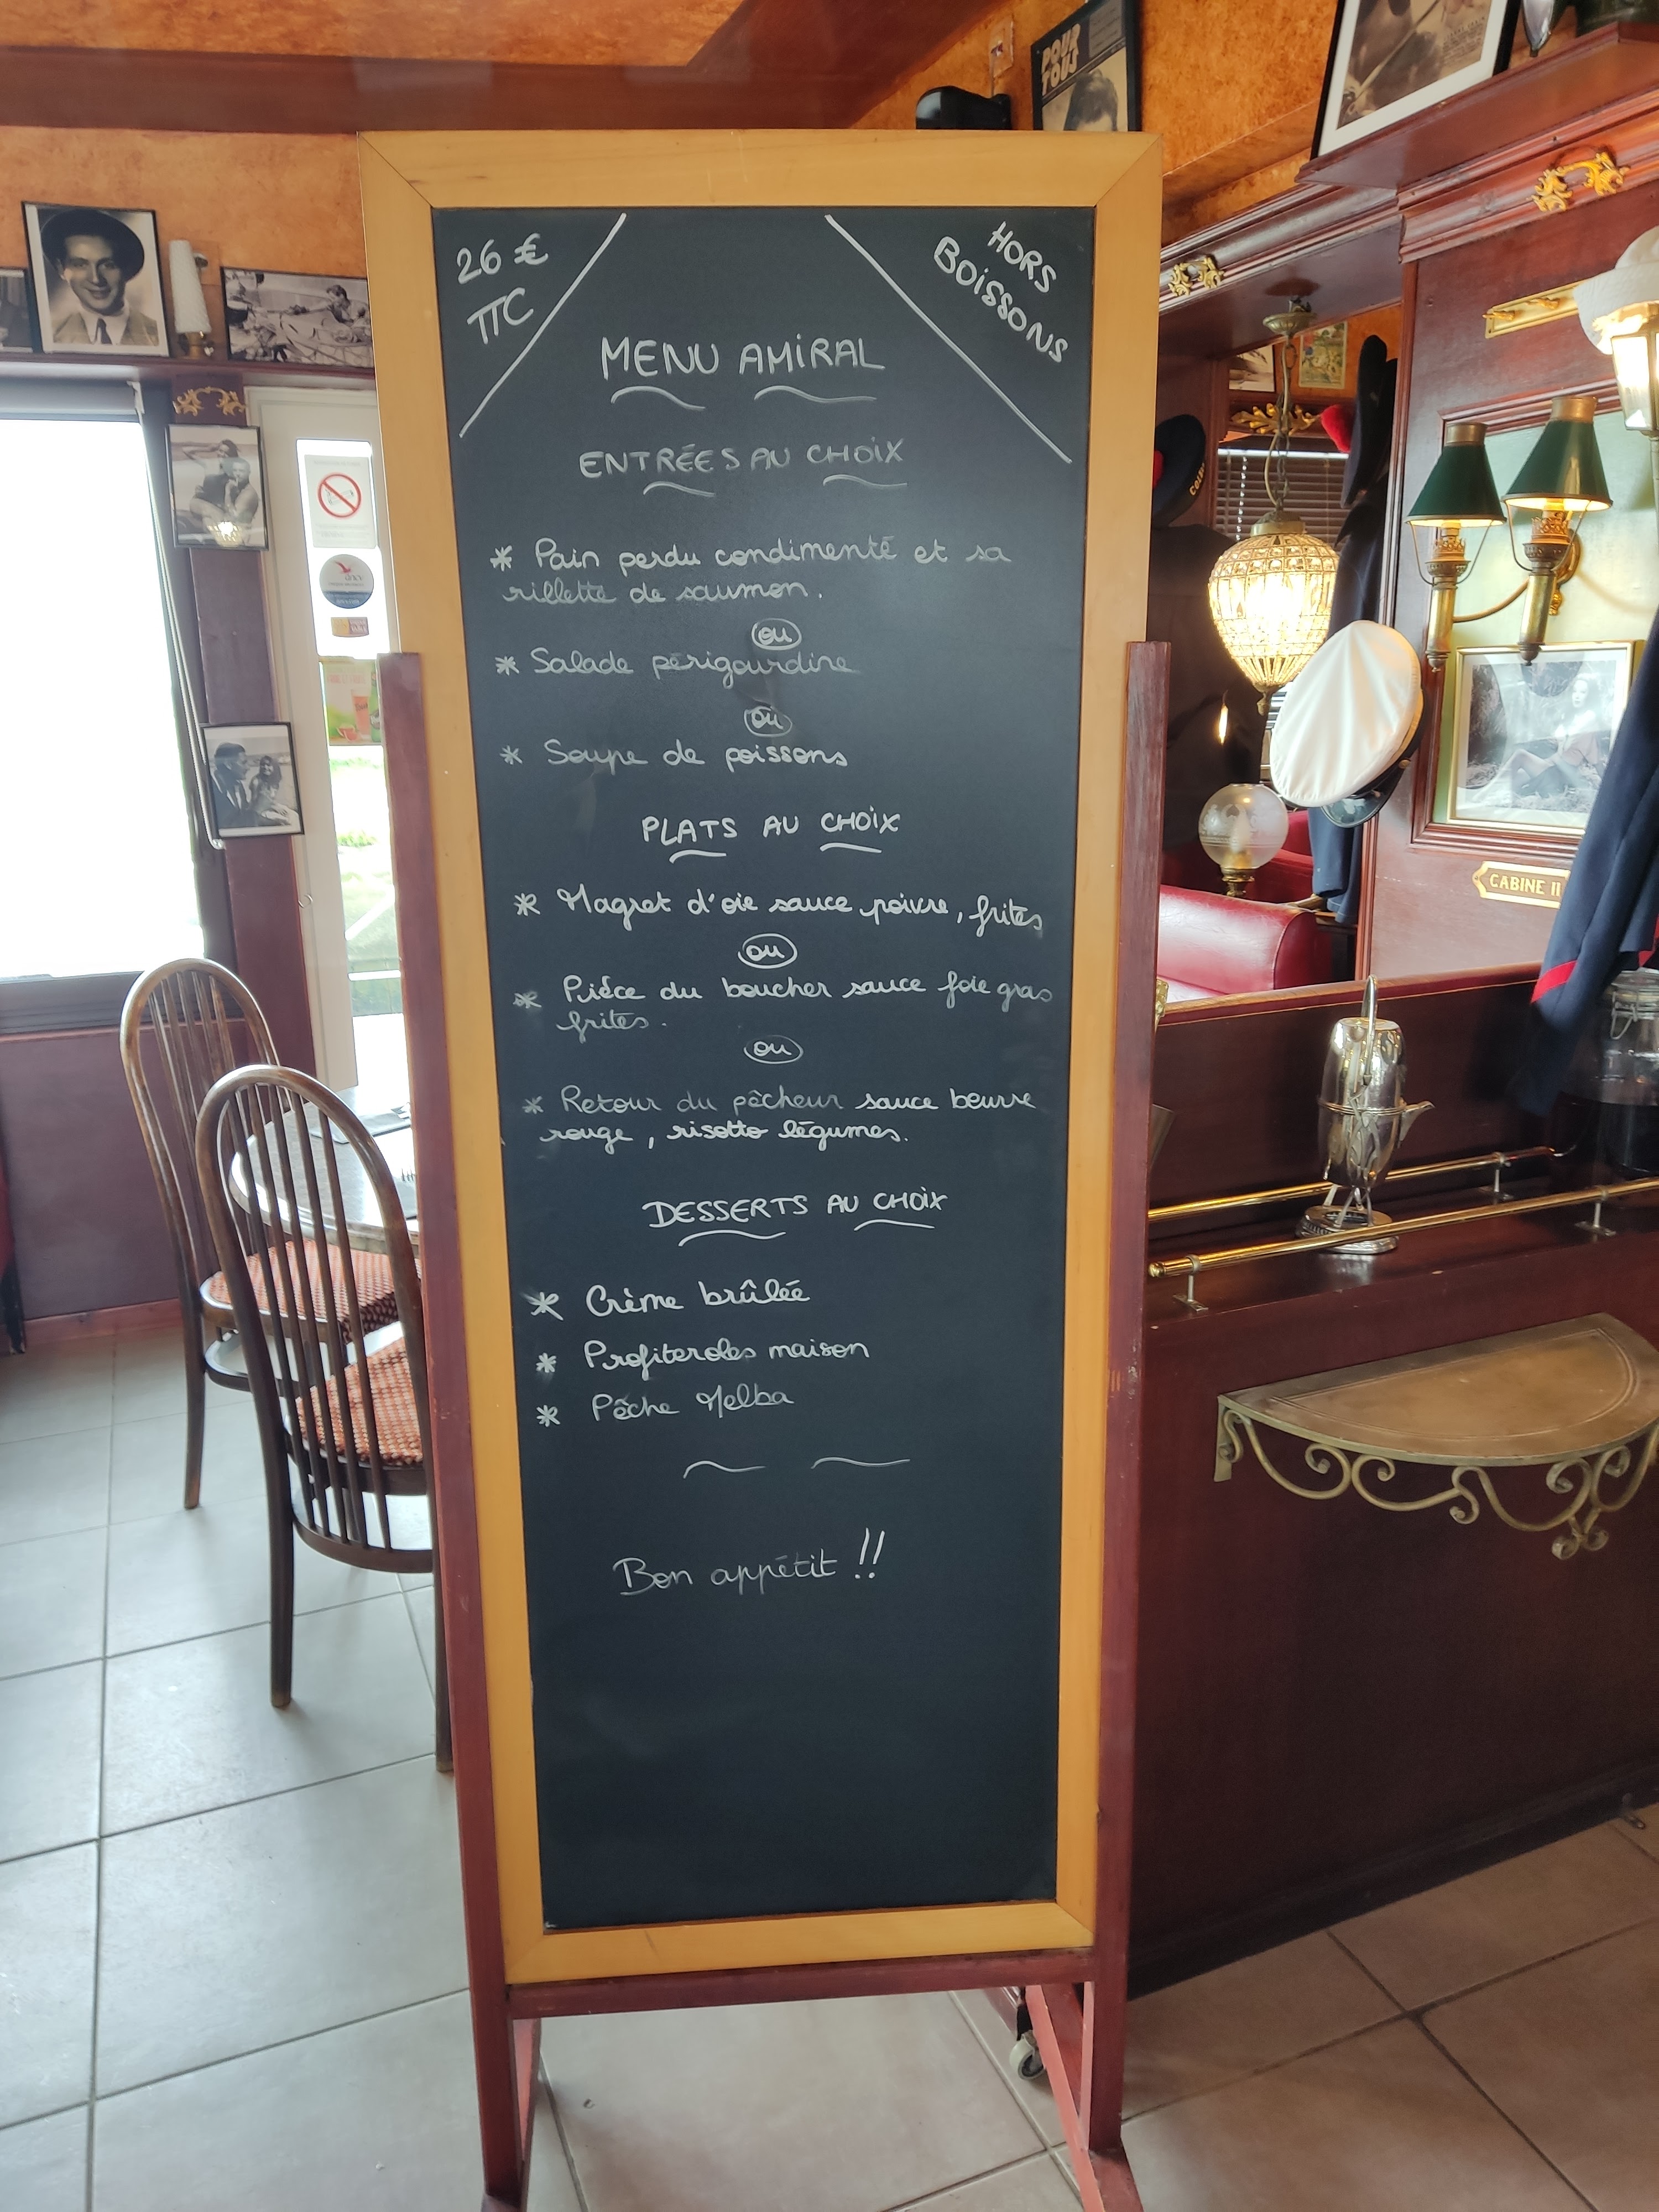 26 €
TTC
HORS
BOISSONS
MENU AMIRAL
ENTRÉES AU CHOIX
* Pain perdu condimenté et sa
rillette de saumon.
ou
* Salade périgourdine
ou
* Soupe de poissons
PLATS AU CHOIX
* Magret d'oie sauce poivre, frites
ou
* Pièce du boucher sauce foie gras
frites.
ou
* Retour du pêcheur sauce beurre
rouge, risotto légumes.
DESSERTS AU CHOIX
* Crème brûlée
* Profiteroles maison
* Pêche Melba
Bon appétit !!
POUR
TOUS
CABINE 11